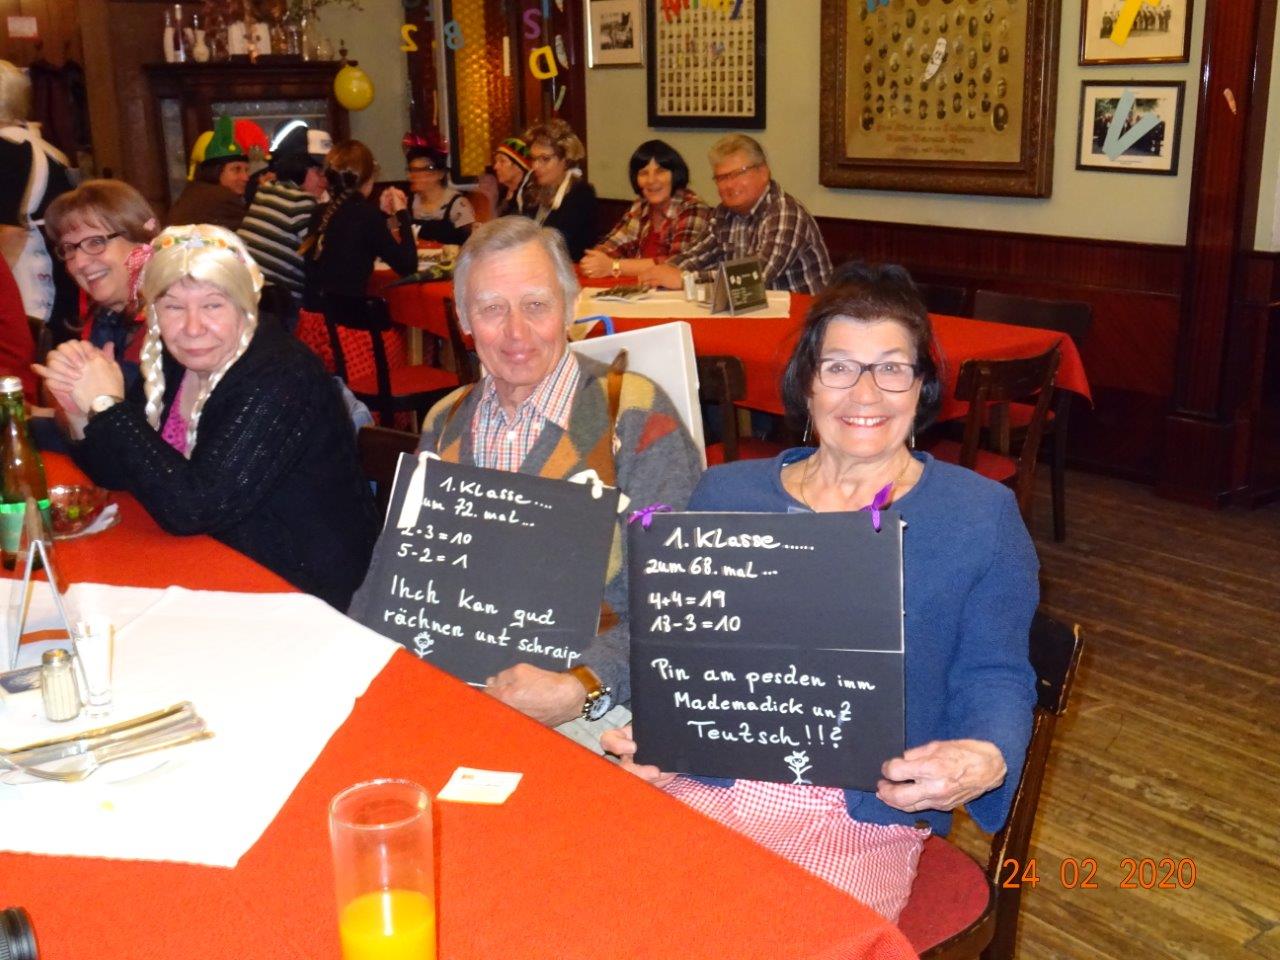 1. Klasse....
zum 72. mal...
2·3=10
5-2=1
Ihch kan gud
rächnen unt schraip
1. Klasse......
zum 68. mal...
4+4=19
13-3=10
Pin am pesden imm
Mademadick unt
Teutsch!!?
24 02 2020